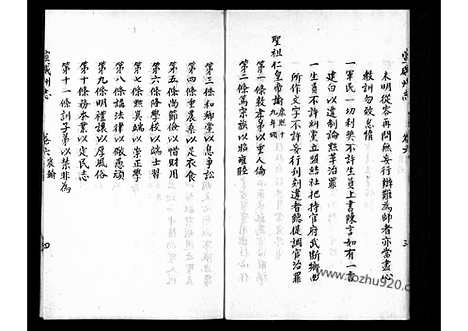 宣威州志
卷六
三
未明從容再問無妄行辯難為師者亦當盡心
教訓勿致怠惰
一軍民一切利獘不許生員上書陳言如有一言
建白以違制論黜革治罪
一生員不許糾黨立盟結社把持官府武斷鄉曲
所作文字不許妄行刋刻違者聽提調官治罪
聖祖仁皇帝諭 康熙九年頒
第一條敦孝弟以重人倫
第二條篤宗族以昭雍睦
第三條和鄉黨以息爭訟
第四條重農桑以足衣食
第五條尚節儉以惜財用
第六條隆學校以端士習
第七條黜異端以崇正學
第八條講法律以儆愚頑
第九條明禮讓以厚風俗
第十條務本業以定民志
第十一條訓子弟以禁非為
宣威州志
卷六
四
www.tozhu920.com